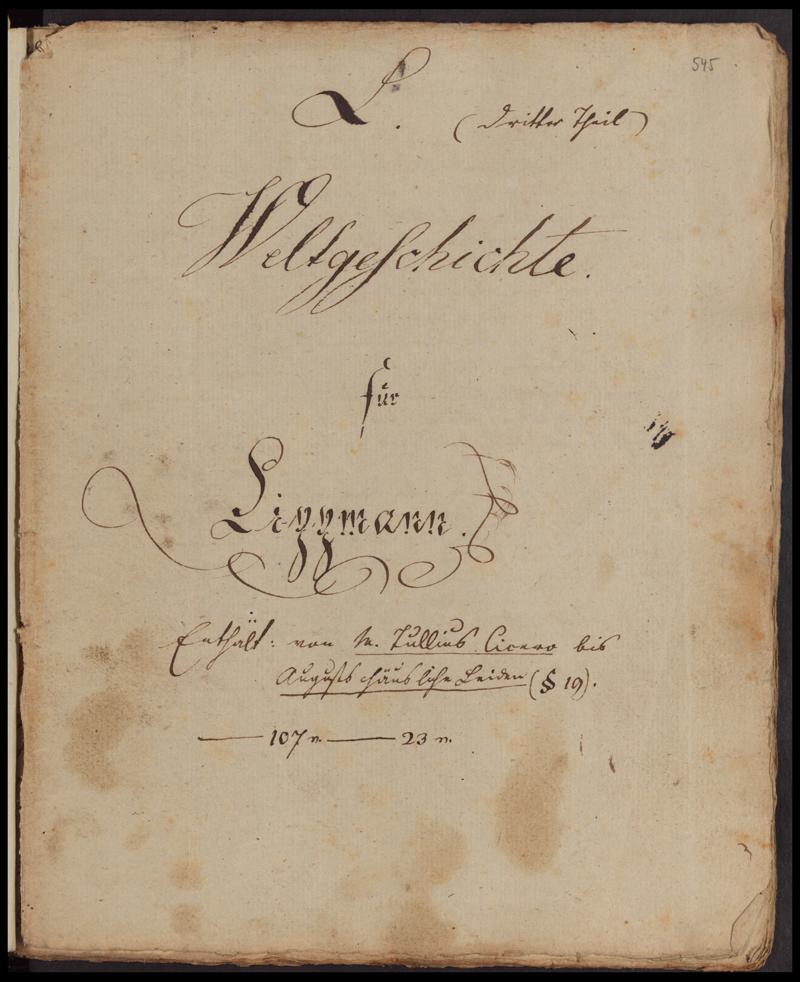 545
L. (Dritter Theil)
Weltgeschichte.
für
Lippmann.
Enthält: von M. Tullius Cicero bis
Augusts häusliche Leiden (§ 19).
— 107 v. — 23 v.